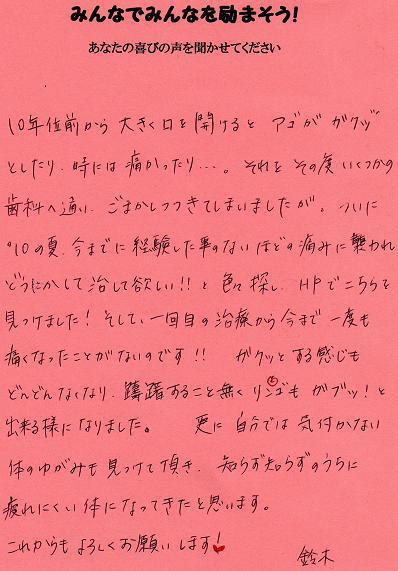 みんなでみんなを励まそう!
あなたの喜びの声を聞かせてください
10年位前から大きく口を開けると アゴが ガクッ
としたり、時には痛かったり…。それを その度 いくつかの
歯科へ通い、ごまかしつづきてしまいましたが。ついに
'10の夏、今までに経験した事のないほどの痛みに襲われ
どうにかして治して欲しい!!と色々探し、HPでこちらを
見つけました!そして、一回目の治療から今まで一度も
痛くなったことがないのです!! ガクッとする感じも
どんどんなくなり、躊躇すること無くリンゴもガブッ!と
出来る様になりました。 更に自分では気付かない
体のゆがみも見つけて頂き、知らず知らずのうちに
疲れにくい体になってきたと思います。
これからもよろしくお願いします!
鈴木